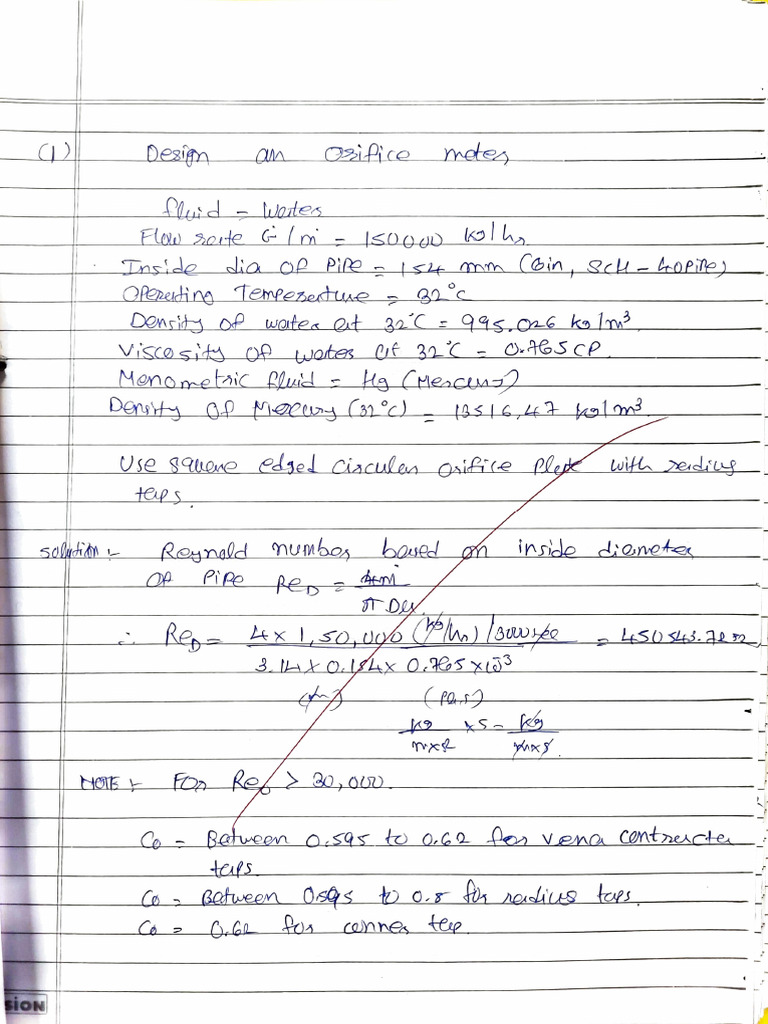 (1) Design an Orifice meter
fluid = Water
Flow rate G / ṁ = 150000 kg/hr
Inside dia of Pipe = 154 mm (6in, SCH-40 Pipe)
Operating Temperature = 32°C
Density of water at 32°C = 995.026 kg/m³
Viscosity of water at 32°C = 0.765 CP
Manometric fluid = Hg (Mercury)
Density of Mercury (32°C) = 13516.47 kg/m³
Use square edged circular orifice plate with radius
taps.
Solution:- Reynold number based on inside diameter
of Pipe ReD = 4ṁ / π Dμ
∴ ReD = 4 × 1,50,000 (kg/hr) / 3600 sec / 3.14 × 0.154 × 0.765 × 10⁻³ = 450543.72
(m) (Pa.s)
kg / m×s² × s = kg / m×s.
NOTE:- For Re₀ > 30,000.
Co = Between 0.595 to 0.62 for vena contracta
taps.
Co = Between 0.595 to 0.8 for radius taps.
Co = 0.62 for corner tap.
SION